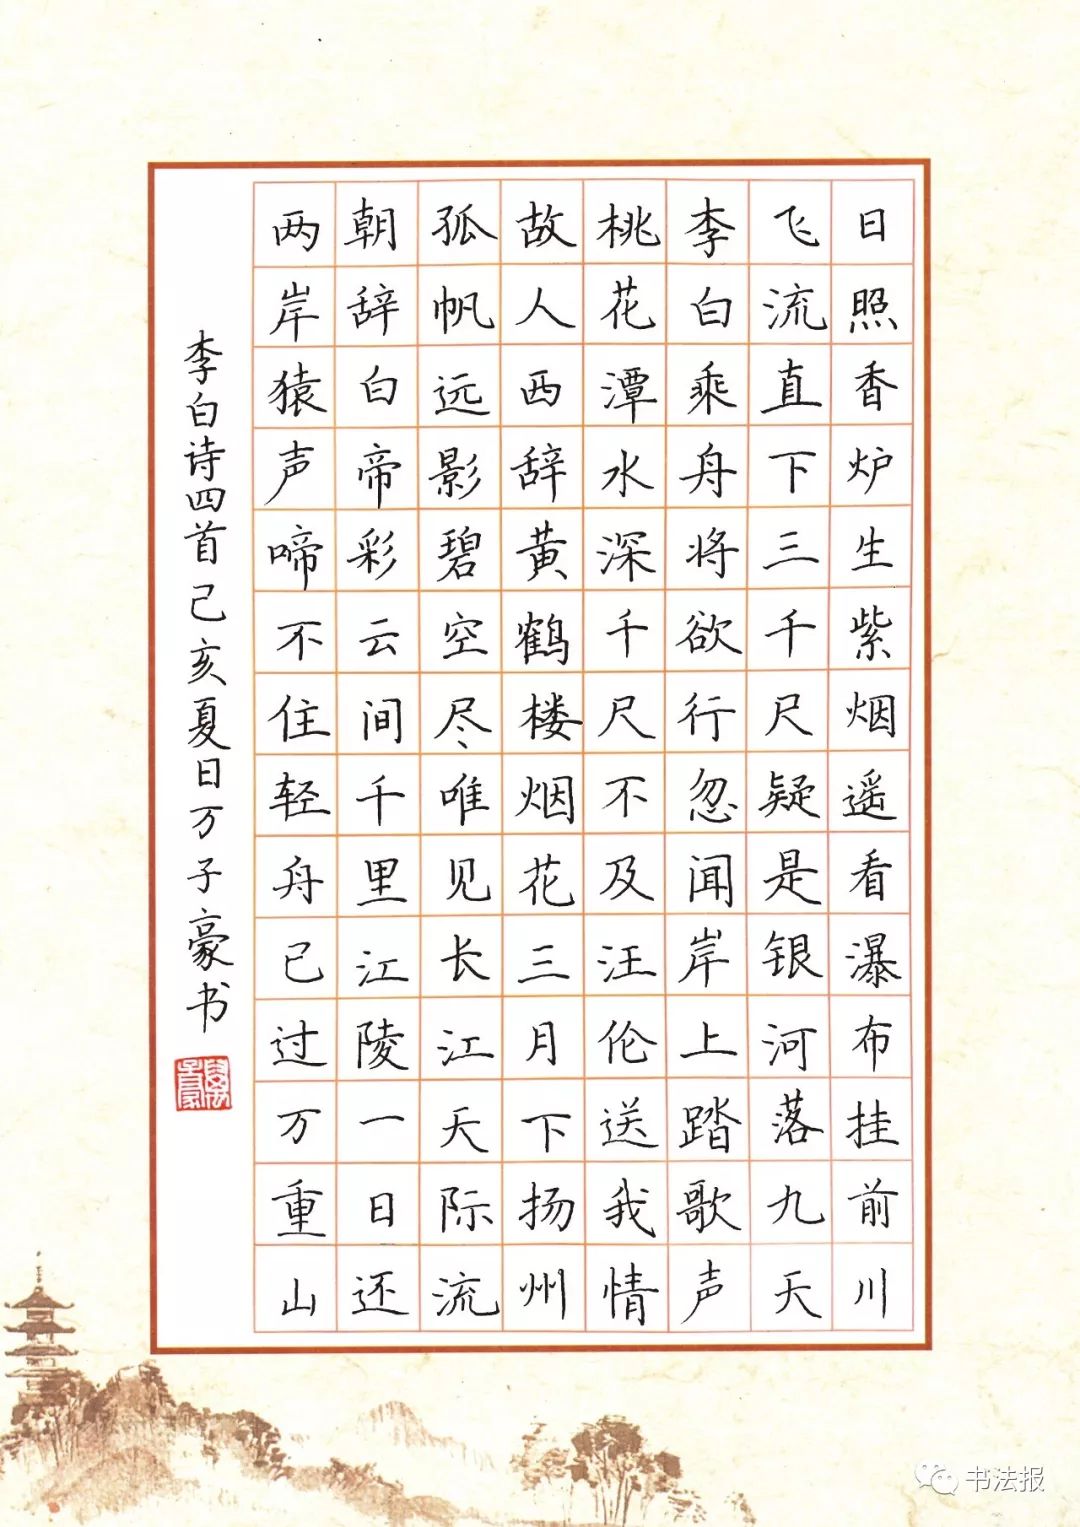 日照香炉生紫烟遥看瀑布挂前川
飞流直下三千尺疑是银河落九天
李白乘舟将欲行忽闻岸上踏歌声
桃花潭水深千尺不及汪伦送我情
故人西辞黄鹤楼烟花三月下扬州
孤帆远影碧空尽唯见长江天际流
朝辞白帝彩云间千里江陵一日还
两岸猿声啼不住轻舟已过万重山
李白诗四首己亥夏日万子豪书
书法报